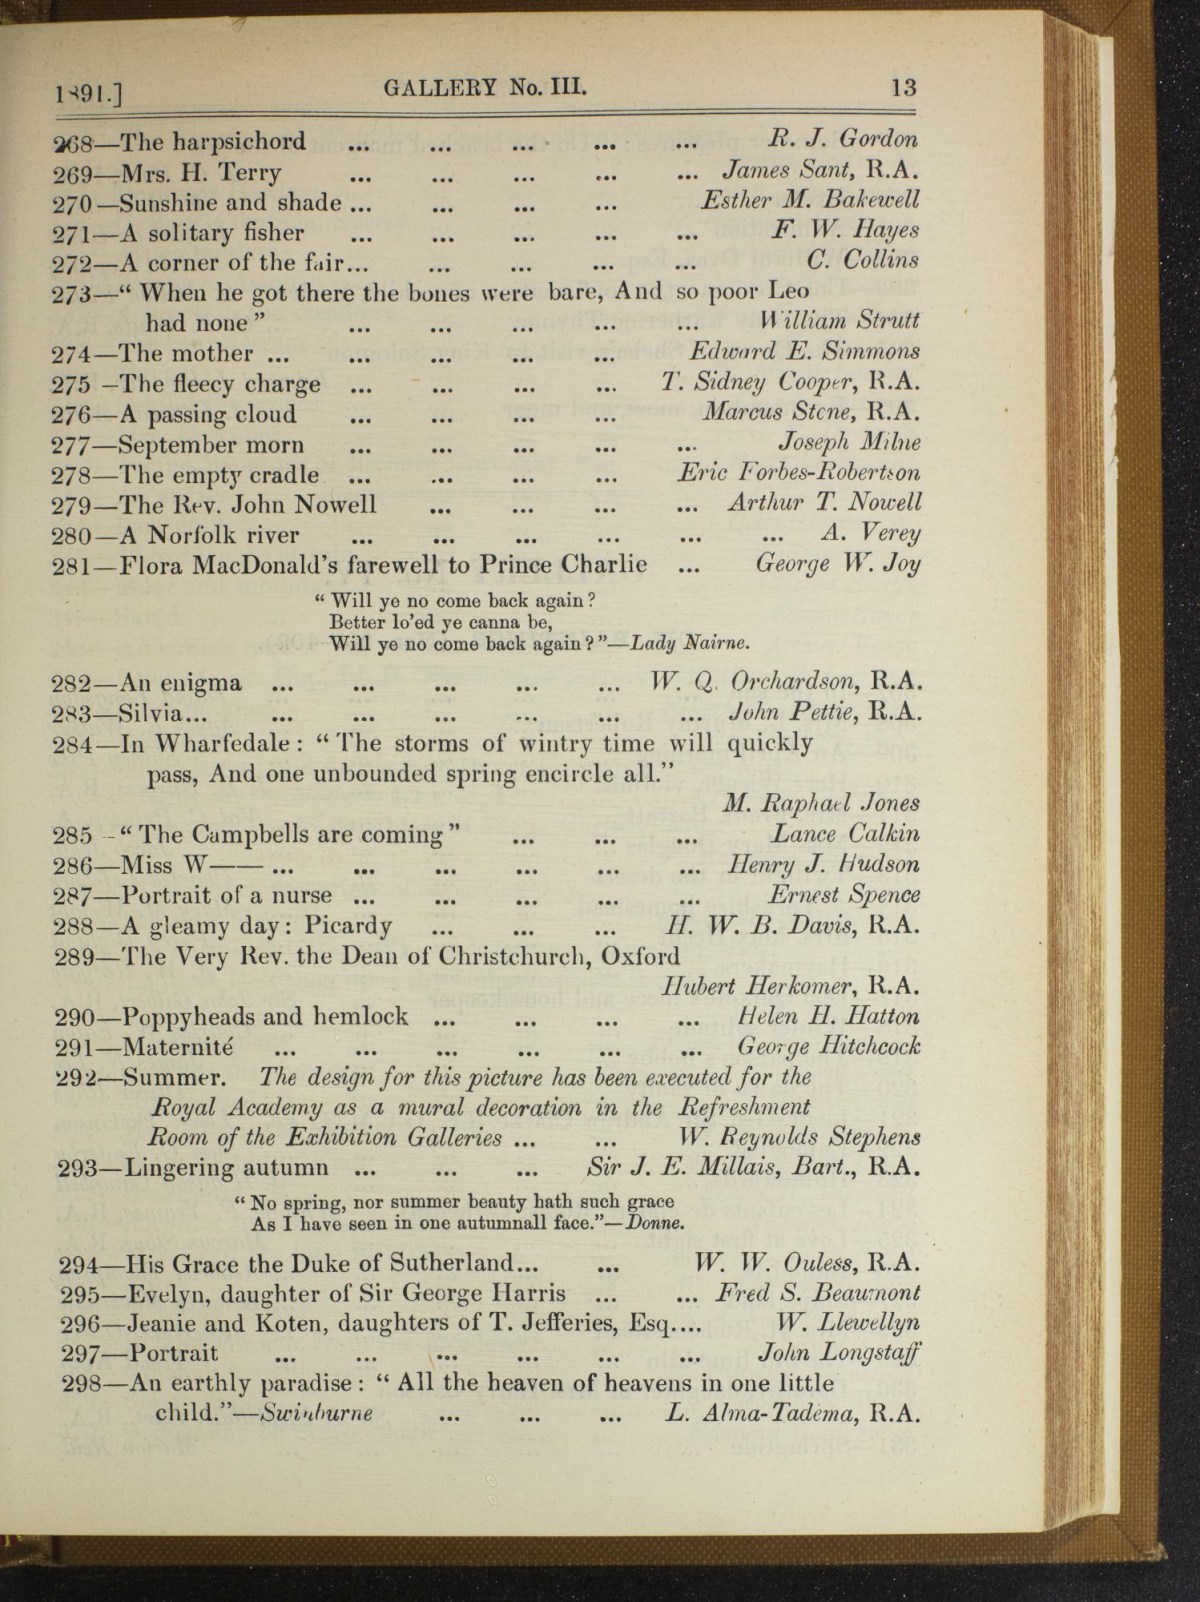 1891.] GALLERY No. III. 13
268—The harpsichord ... ... ... ... ... R. J. Gordon
269—Mrs. H. Terry ... ... ... ... ... James Sant, R.A.
270—Sunshine and shade ... ... ... ... Esther M. Bakewell
271—A solitary fisher ... ... ... ... ... F. W. Hayes
272—A corner of the fair... ... ... ... ... C. Collins
273—“ When he got there the bones were bare, And so poor Leo
had none ” ... ... ... ... ... William Strutt
274—The mother ... ... ... ... ... Edward E. Simmons
275 –The fleecy charge ... ... ... ... T. Sidney Cooper, R.A.
276—A passing cloud ... ... ... ... Marcus Stone, R.A.
277—September morn ... ... ... ... ... Joseph Milne
278—The empty cradle ... ... ... ... Eric Forbes-Robertson
279—The Rev. John Nowell ... ... ... ... Arthur T. Nowell
280—A Norfolk river ... ... ... ... ... ... A. Verey
281—Flora MacDonald’s farewell to Prince Charlie ... George W. Joy
“ Will ye no come back again ?
Better lo’ed ye canna be,
Will ye no come back again ? ”—Lady Nairne.
282—An enigma ... ... ... ... ... W. Q. Orchardson, R.A.
283—Silvia... ... ... ... ... ... ... John Pettie, R.A.
284—In Wharfedale : “ The storms of wintry time will quickly
pass, And one unbounded spring encircle all.”
M. Raphael Jones
285 –“ The Campbells are coming ” ... ... ... Lance Calkin
286—Miss W—— ... ... ... ... ... ... Henry J. Hudson
287—Portrait of a nurse ... ... ... ... ... Ernest Spence
288—A gleamy day : Picardy ... ... ... H. W. B. Davis, R.A.
289—The Very Rev. the Dean of Christchurch, Oxford
Hubert Herkomer, R.A.
290—Poppyheads and hemlock ... ... ... ... Helen H. Hatton
291—Maternité ... ... ... ... ... ... George Hitchcock
292—Summer. The design for this picture has been executed for the
Royal Academy as a mural decoration in the Refreshment
Room of the Exhibition Galleries ... ... W. Reynolds Stephens
293—Lingering autumn ... ... ... Sir J. E. Millais, Bart., R.A.
“ No spring, nor summer beauty hath such grace
As I have seen in one autumnall face.”—Donne.
294—His Grace the Duke of Sutherland... ... W. W. Ouless, R.A.
295—Evelyn, daughter of Sir George Harris ... ... Fred S. Beaumont
296—Jeanie and Koten, daughters of T. Jefferies, Esq.... W. Llewellyn
297—Portrait ... ... ... ... ... ... John Longstaff
298—An earthly paradise : “ All the heaven of heavens in one little
child.”—Swinburne ... ... ... L. Alma-Tadema, R.A.